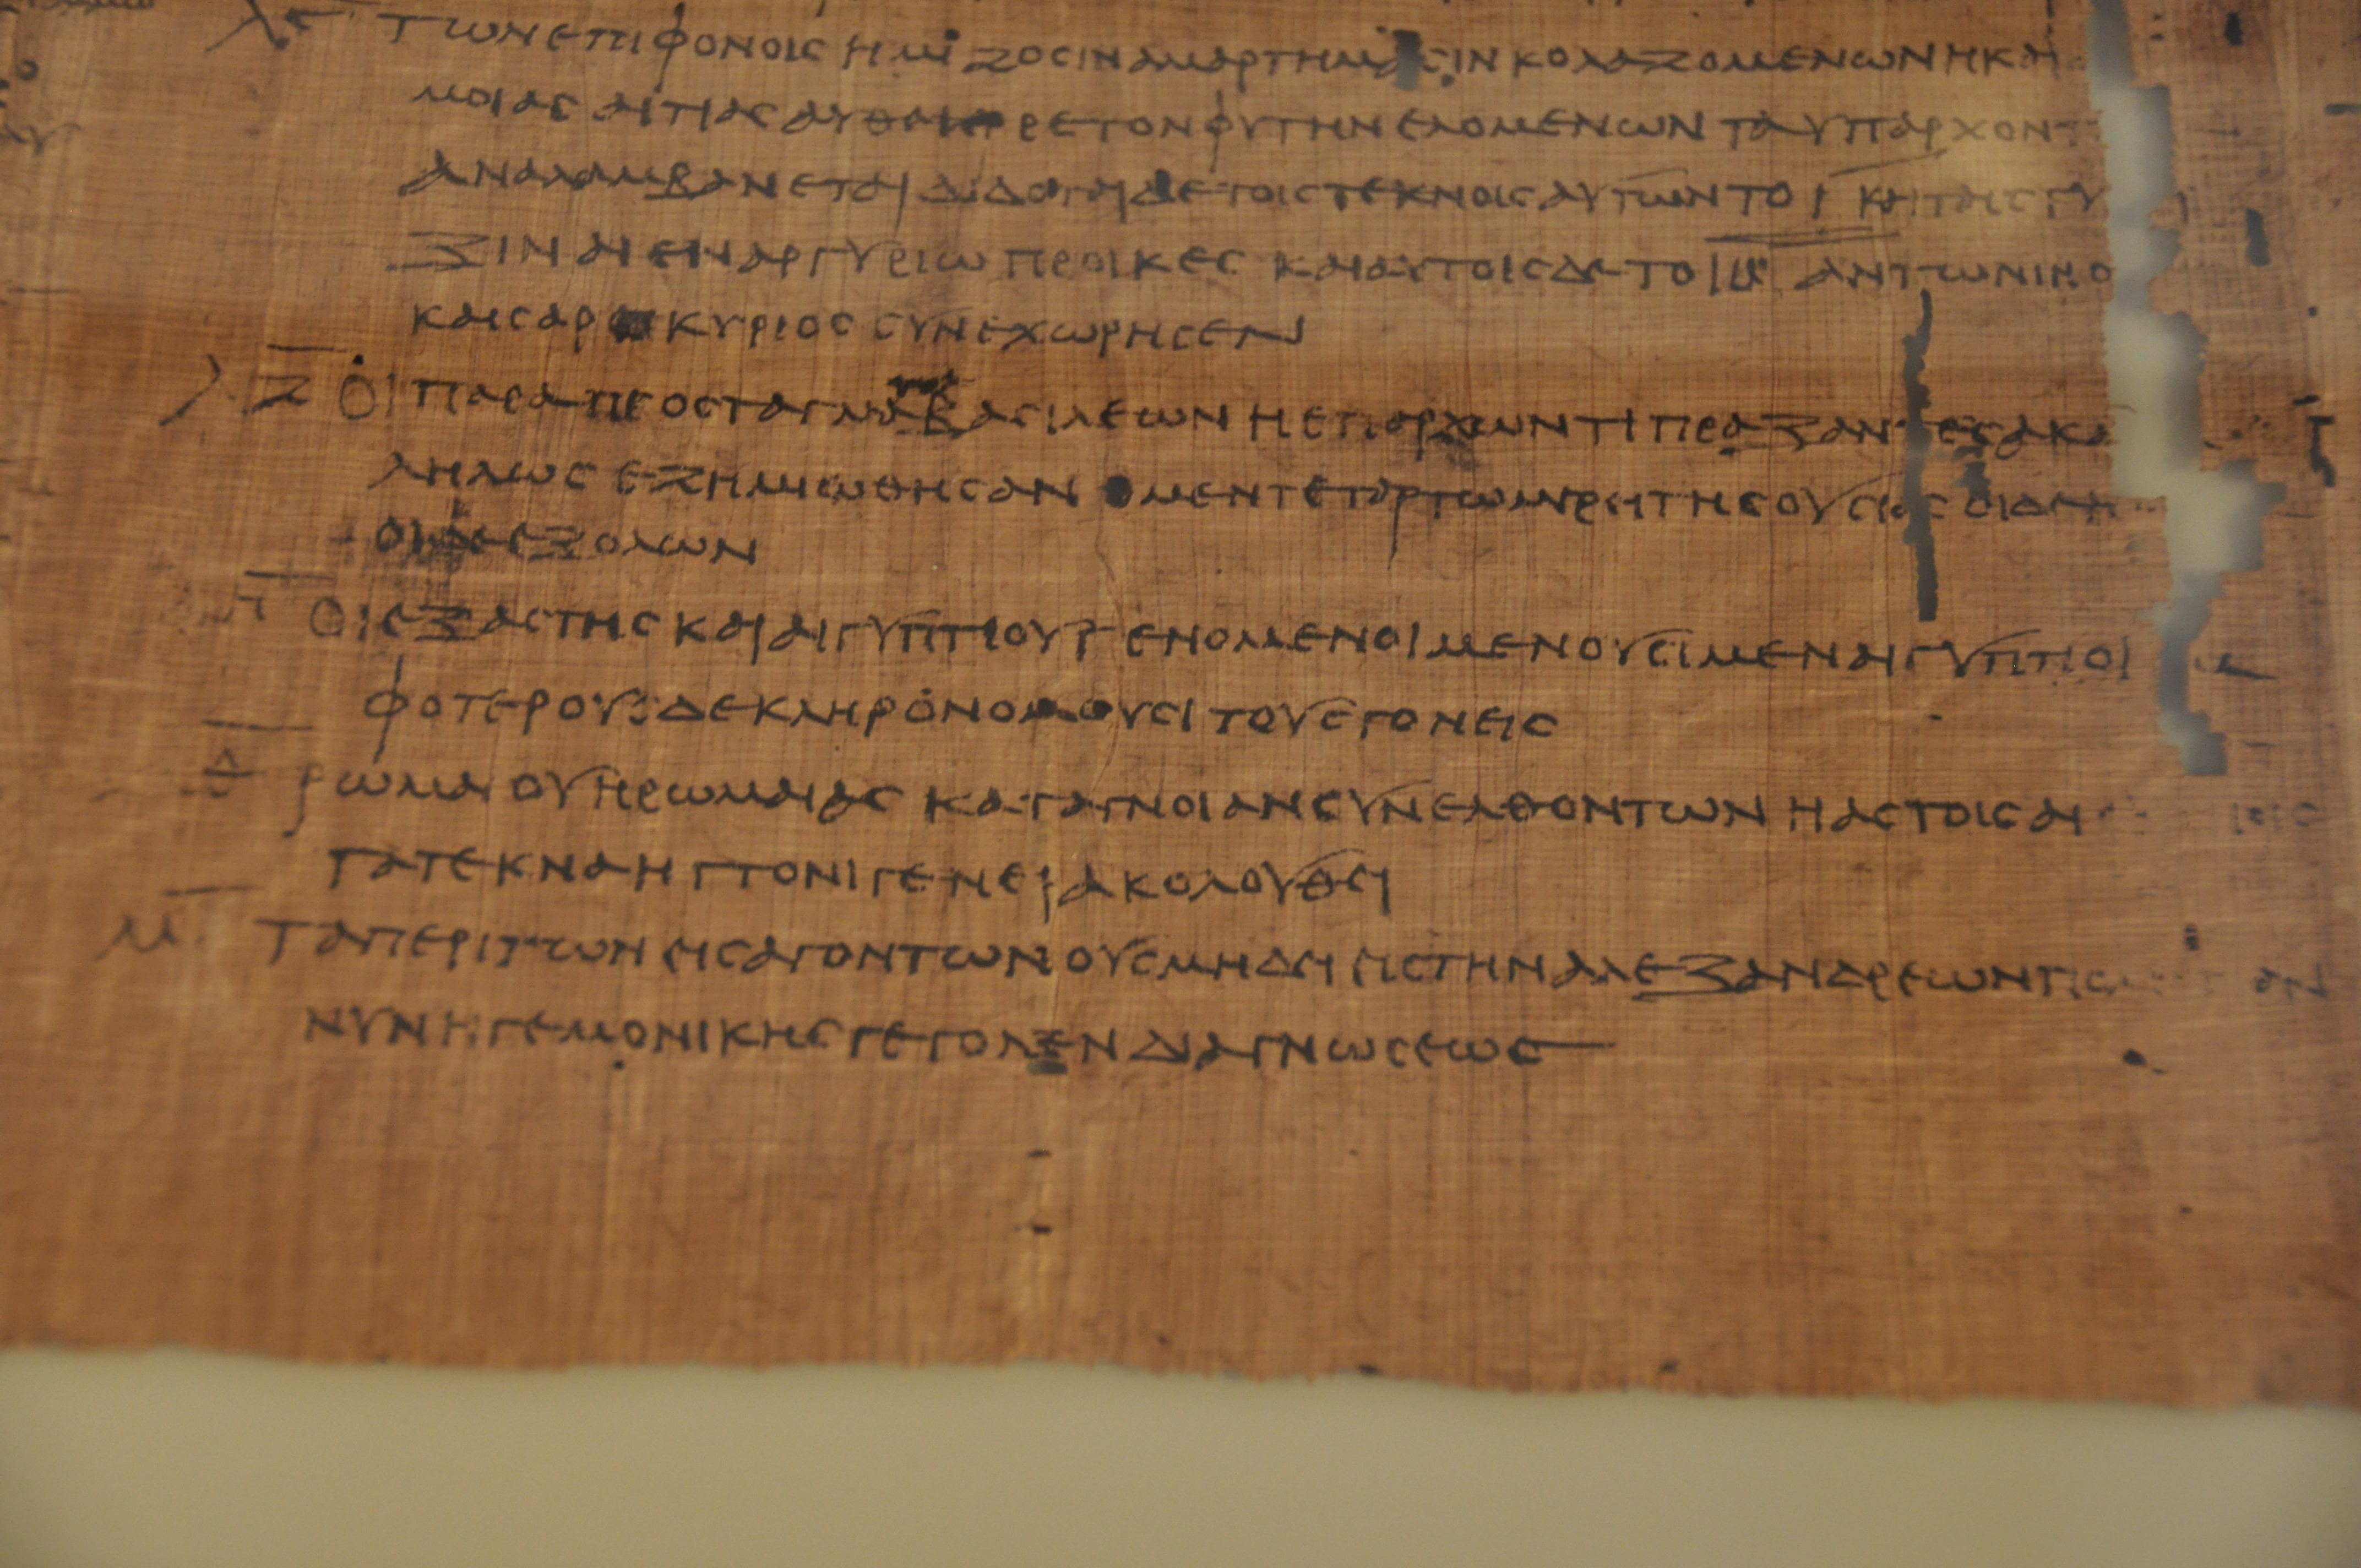 λϛ τωνεπιφονοιςημιζοσιναμαρτημασινκολαζομενωνηκαι
μοιαςαιτιαςαυθαιρετονφυτηνελομενωνταυπαρχοντ
αναλαμβανεταιδιδοταιδετοιςτεκνοιςαυτωντοικαιταιςγυ
ξιναιεναργυριωπροικεςκαιαυτοιςδετοιβαντωνινο
καισαροκυριοςσυνεχωρησεν
λζ οιπαραπροσταγμαβασιλεωνηεπαρχωντιπραξαντεςακα
ληλωςεζημιωθησανομεντεταρτωμερητηςουσιαςοιδε
οιδεεξολων
λη οιεξαστηςκαιαιγυπτιουγενομενοιμενουσιμεναιγυπτιοι
φοτερουςδεκληρονομουσιτουςγονεις
λθ ρωμαιουηρωμαιαςκαταγνοιανσυνελθοντωνηαστοιςαι
τατεκναηττονιγενειακολουθει
μ ταπεριτωνεισαγοντωνουςμηδειειςτηναλεξανδρεων
νυνηγεμονικηςγεγονενδιαγνωσεως